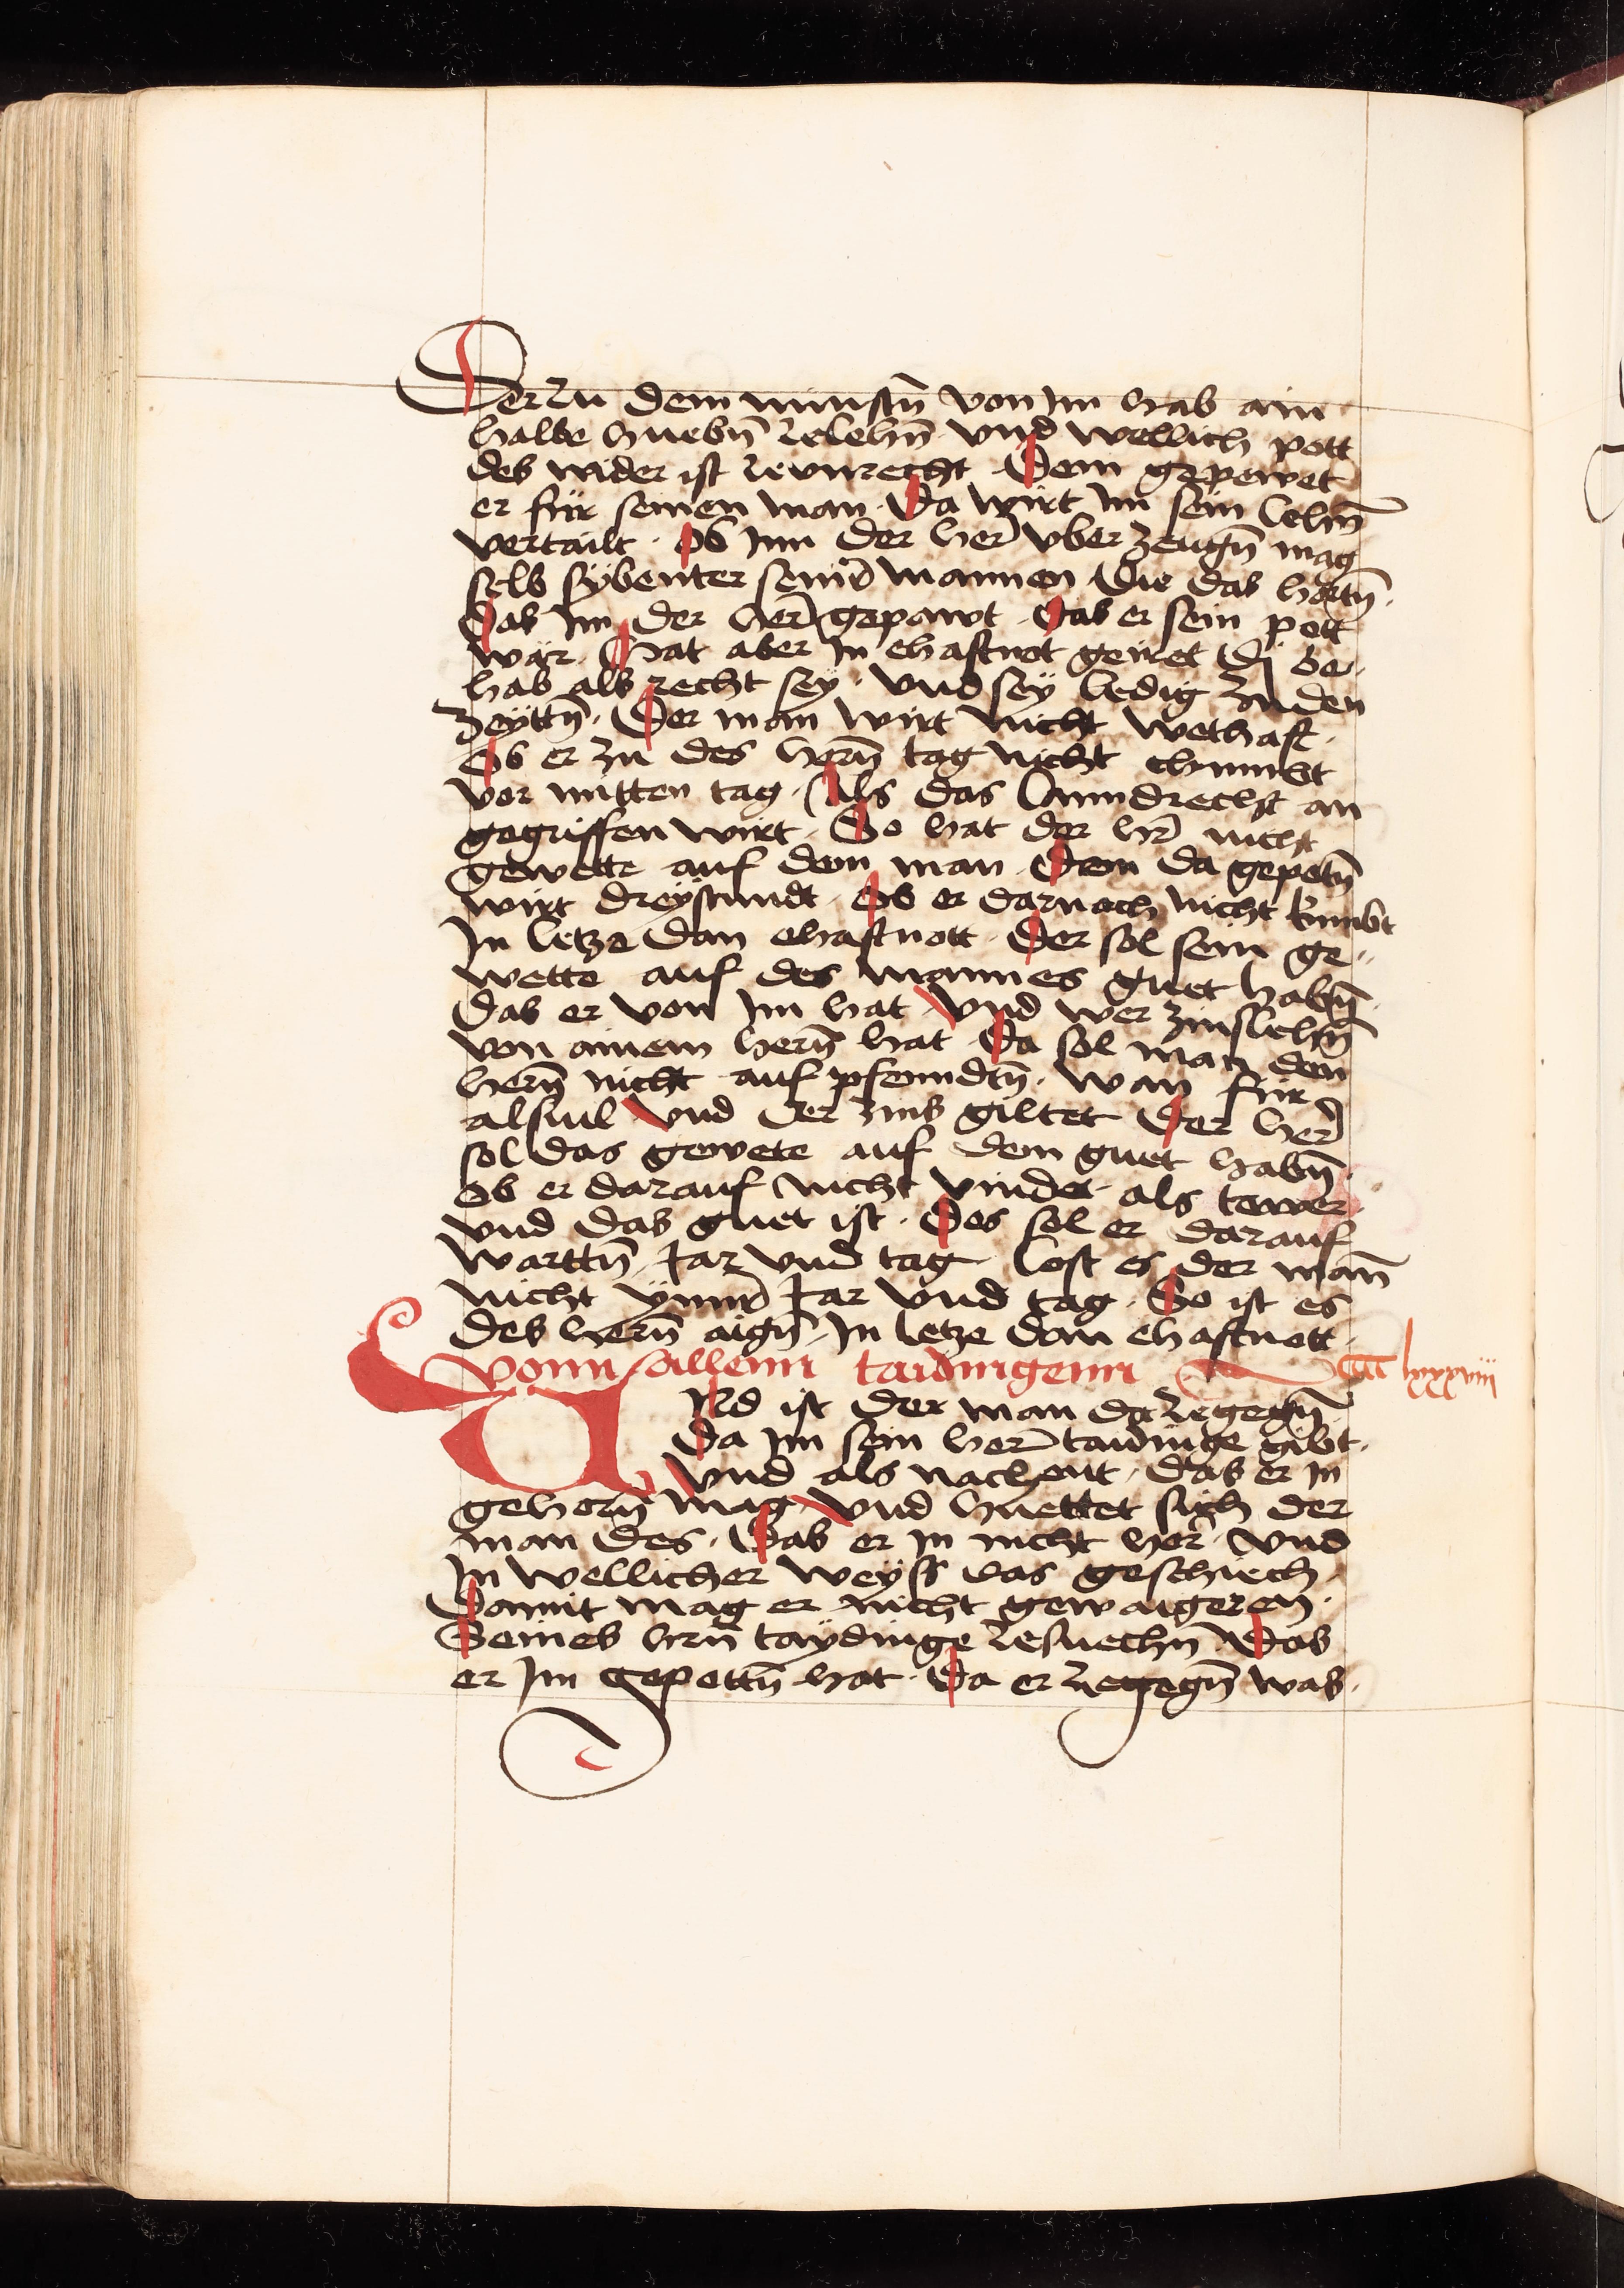 Der zu dem minstn̄ von Im hab ain
halbe huebn̄ zelehn̄ vnd wellich pott
des wider ist zevnrecht · Dem gepewtet
er für seinen man · Da wirt im sein lehn̄
vertailt · Ob Inn der her̄ vberzeugn̄ mag
selb sybenter seinr̄ mannen Die das hortn̄ ·
Das Im der her̄ gepawt · Das er sein pott
wär · Hat aber In ehaftnot geiret Dj be-
hab als recht sey · Vnd sey ledig zu den
zeyttn̄ · Der man wirt nicht wethaft ·
Ob er zu des hern̄ tag nicht chumbt
vor mitten tag · Als das lanndrecht an
gegriffen wirt · So hat der hr̄ nicht
gewette auf dem man · Dem da gepotn̄
wirt dreystundt · Ob er darnach nicht kumbt
In letze dan ehaftnott · Der sol sein ge-
wette auf des mannes guet habn̄ ·
Das er von Im hat Vnd wer zinslehn̄
von ainem hern̄ hat Da sol man dem
hern̄ nicht auf pfenndtn̄ · wan für
alsuil Vnd der zins giltet Der her̄
sol das gewete auf dem guet habn̄ ·
Ob er darauf nicht vindet als tewer
vnd das guet ist · Des sol er darauf
warttn̄ Jar vnd tag · Lost es der man̄
nicht ynnr̄ Jar vnd tag · So ist es
des hern̄ aign̄ In letze dan ehaftnott ·
Vonn allenn taidingenn lxxxviii
Vnd ist der man da zegegn̄
Da Im sein her̄ taidinge gibt ·
Vnd als nachent · Das er In
gehorn̄ mag Vnd huettet sich der
man des · Das er In nicht hor̄ · Vnd
In wellicher weyss das geschiech ·
Damit mag er nicht gewaigeren ·
Seines hrn̄ taydinge zesuechn̄ · Das
er Im gepottn̄ hat · Da er zegegn̄ was ·